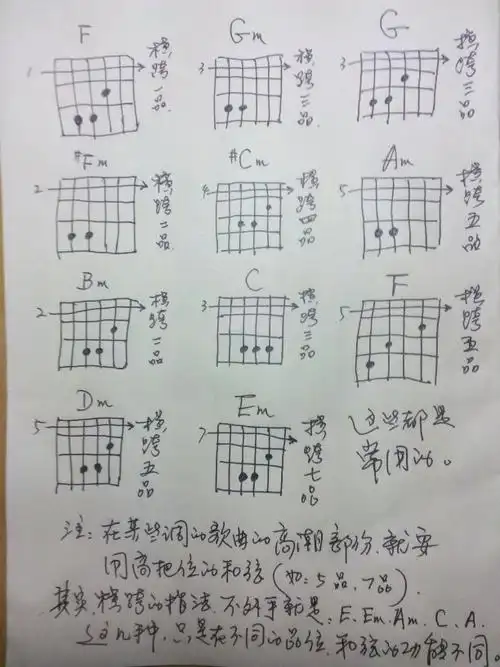 F
1 横跨一品.
Gm
3 横跨三品.
G
3 横跨三品
#Fm
2 横跨二品.
#Cm
4 横跨四品
Am
5 横跨五品
Bm
2 横跨二品
C
3 横跨三品
F
5 横跨五品
Dm
5 横跨五品
Em
7 横跨七品
这些都是
常用的。
注: 在某些调的歌曲的高潮部份.就要
用高把位的和弦(如:5品,7品).
其实,横跨的指法.不外乎就是:E.Em.Am.C.A.
这几种,只是在不同的品位.和弦的功能不同。